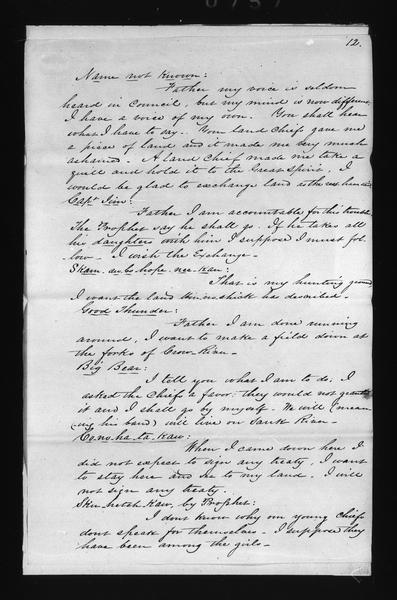 12.
Name not known:
Father my voice is seldom
heard in Council, but my mind is now different
I have a voice of my own. You shall hear
what I have to say. Your land Chiefs gave me
a piece of land and it made me very much
ashamed. A land Chief made me take a
quill and hold it to the Great Spirit. I
would be glad to exchange land as the
Capt Jim:
Father I am accountable for this trouble
The Prophet say he shall go. If he takes all
his daughters with him I suppose I must fol-
low - I wish the Exchange -
That is my hunting ground
I want the land has described.
Good Thunder:
Father I am done running
around, I want to make a field down at
the forks of Crow River -
Big Bear:
I tell you what I am to do; I
asked the Chiefs a favor: they would not grant
it and I shall go by myself. We will (mean-
ing his band) will live on Sauk River -
Co.no.ha.ta.Kaw:
When I came down here I
did not expect to sign any treaty, I want
to stay here and see to my land. I will
not sign any treaty.
by Prophet:
I dont know why our young Chiefs
dont speak for themselves - I suppose they
have been among the girls -